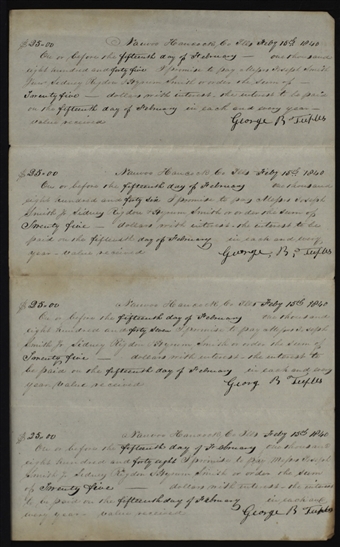 $25.00 Nauvoo Hancock Co Ills Feby 15th 1840
On or before the fifteenth day of February one thousand
eight hundred and forty five I promise to pay Messrs Joseph Smith
Junr Sidney Rigdon & Hyrum Smith or order the Sum of
Twenty five dollars with interest, the interest to be paid
on the fifteenth day of February in each and every year
value received
George B Tuples
$25.00 Nauvoo Hancock Co Ills Feby 15th 1840
On or before the fifteenth day of February one thousand
eight hundred and forty six I promise to pay Messrs Joseph
Smith Jr Sidney Rigdon & Hyrum Smith or order the Sum of
Twenty five dollars with interest the interest to be
paid on the fifteenth day of February in each and every
year value received
George B Tuples
$25.00 Nauvoo Hancock Co Ills Feby 15th 1840
On or before the fifteenth day of February one thousand
eight hundred and forty I promise to pay Messrs Joseph
Smith Jr Sidney Rigdon & Hyrum Smith or order the Sum of
Twenty five dollars with interest the interest to
be paid on the fifteenth day of February in each and every
year value received
Georg B Tuples
$25.00 Nauvoo Hancock Co Ills Feby 15th 1840
On or before the fifteenth day of February one thousand
eight hundred and forty eight I promise to pay Messrs Joseph
Smith Jr Sidney Rigdon & Hyrum Smith or order the Sum
of Twenty five dollars with interest the interest
to be paid on the fifteenth day of February in each and
every year value received
George B Tuples